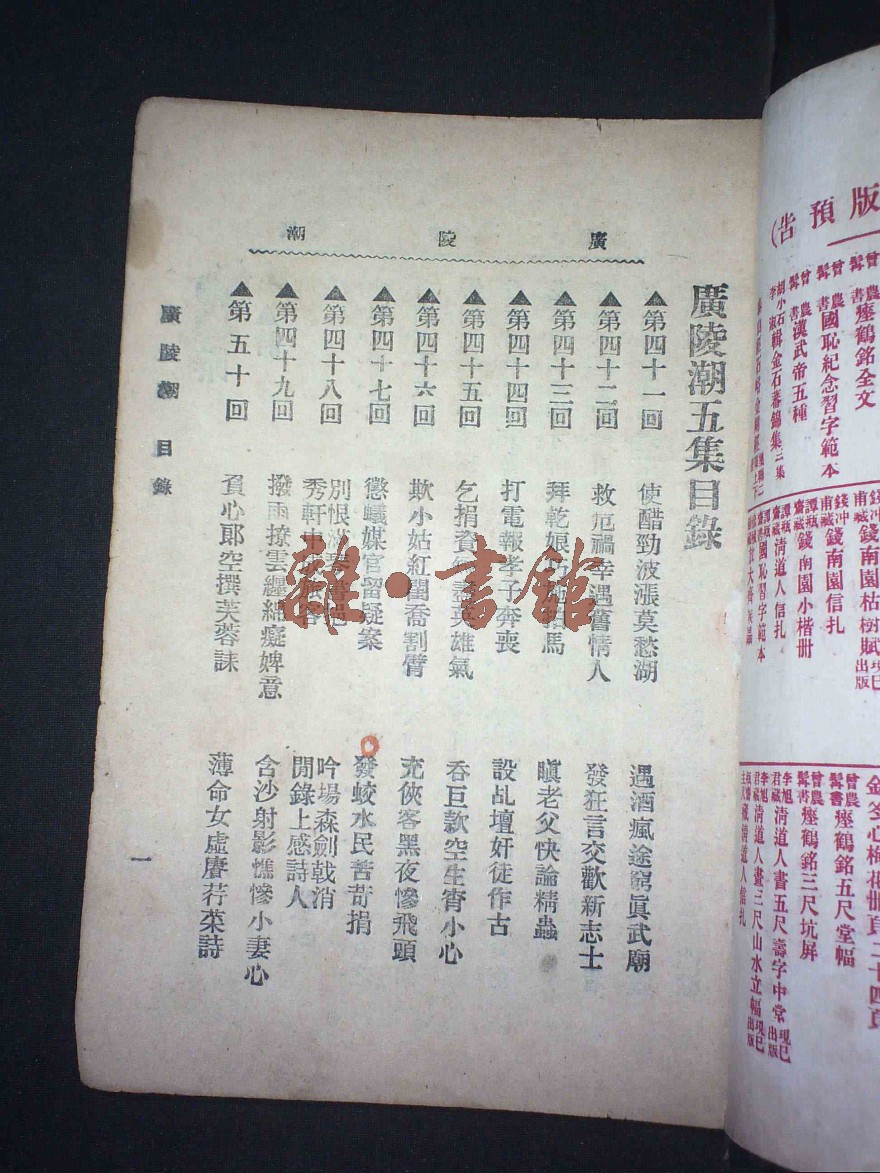 廣陵潮
廣陵潮五集目錄
▲第四十一回 使醋勁波漲莫愁湖 遇酒瘋途窮眞武廟
▲第四十二回 救厄禍幸遇舊情人 發狂言交歡新志士
▲第四十三回 拜乾娘 馬 瞋老父快論精蟲
▲第四十四回 打電報孝子奔喪 設乩壇奸徒作古
▲第四十五回 乞捐資 英雄氣 吞巨款空生宵小心
▲第四十六回 欺小姑紅閨喬割臂 充俠客黑夜慘飛頭
▲第四十七回 懲蟻媒官留疑案 發蛟水民苦苛捐
▲第四十八回 別恨 秀軒中 吟場森劍戟消閒錄上感詩人
▲第四十九回 撥雨撩雲纏綿癡婢意 含沙射影憔慘小妻心
▲第五十回 負心郎空撰芙蓉誄 薄命女虛賡荇菜詩
廣陵潮 目錄
一
雜·書館
版預告)
曾農髯書瘞鶴銘全文
曾農髯書國恥紀念習字範本
曾農髯書漢武帝五種
胡小石輯金石蕃錦集三集
錢冲甫藏錢南園枯樹賦現已出版
錢冲甫藏錢南園信札
譚瓶齋藏錢南園小楷册
譚瓶齋藏清道人信札
譚瓶齋書國恥習字範本
曾農髯書瘞鶴銘五尺堂幅
曾農髯書瘞鶴銘三尺坑屏
李旭君藏清道人書五尺壽字中堂現已出版
李旭君藏清道人畫三尺山水立幅現已出版
藏清道人信札